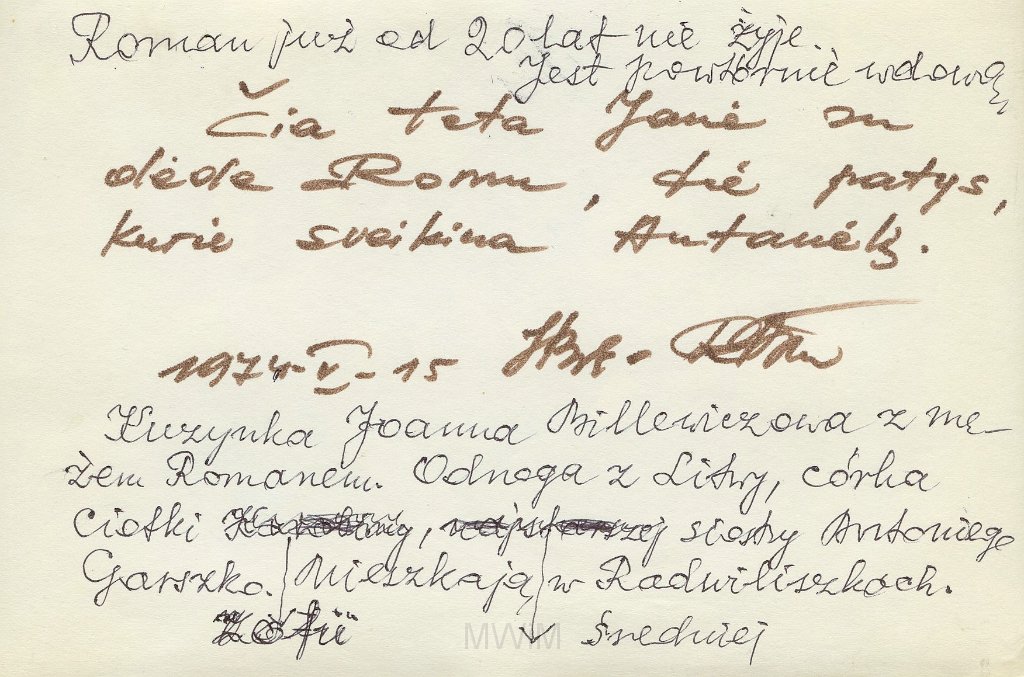 Roman już od 20 lat nie żyje.
Jest powtórnie wdową,
Čia teta Janė su
dėde Romu, tie patys,
kurie sveikina Antanėlį.
1974-V-15
Kuzynka Joanna Billewiczowa z mę-
żem Romanem. Odnoga z Litwy, córka
Ciotki Karoliny, najstarszej siostry Antoniego
Garszko. Mieszkają w Radwiliszkach.
Zofii średniej
MWM